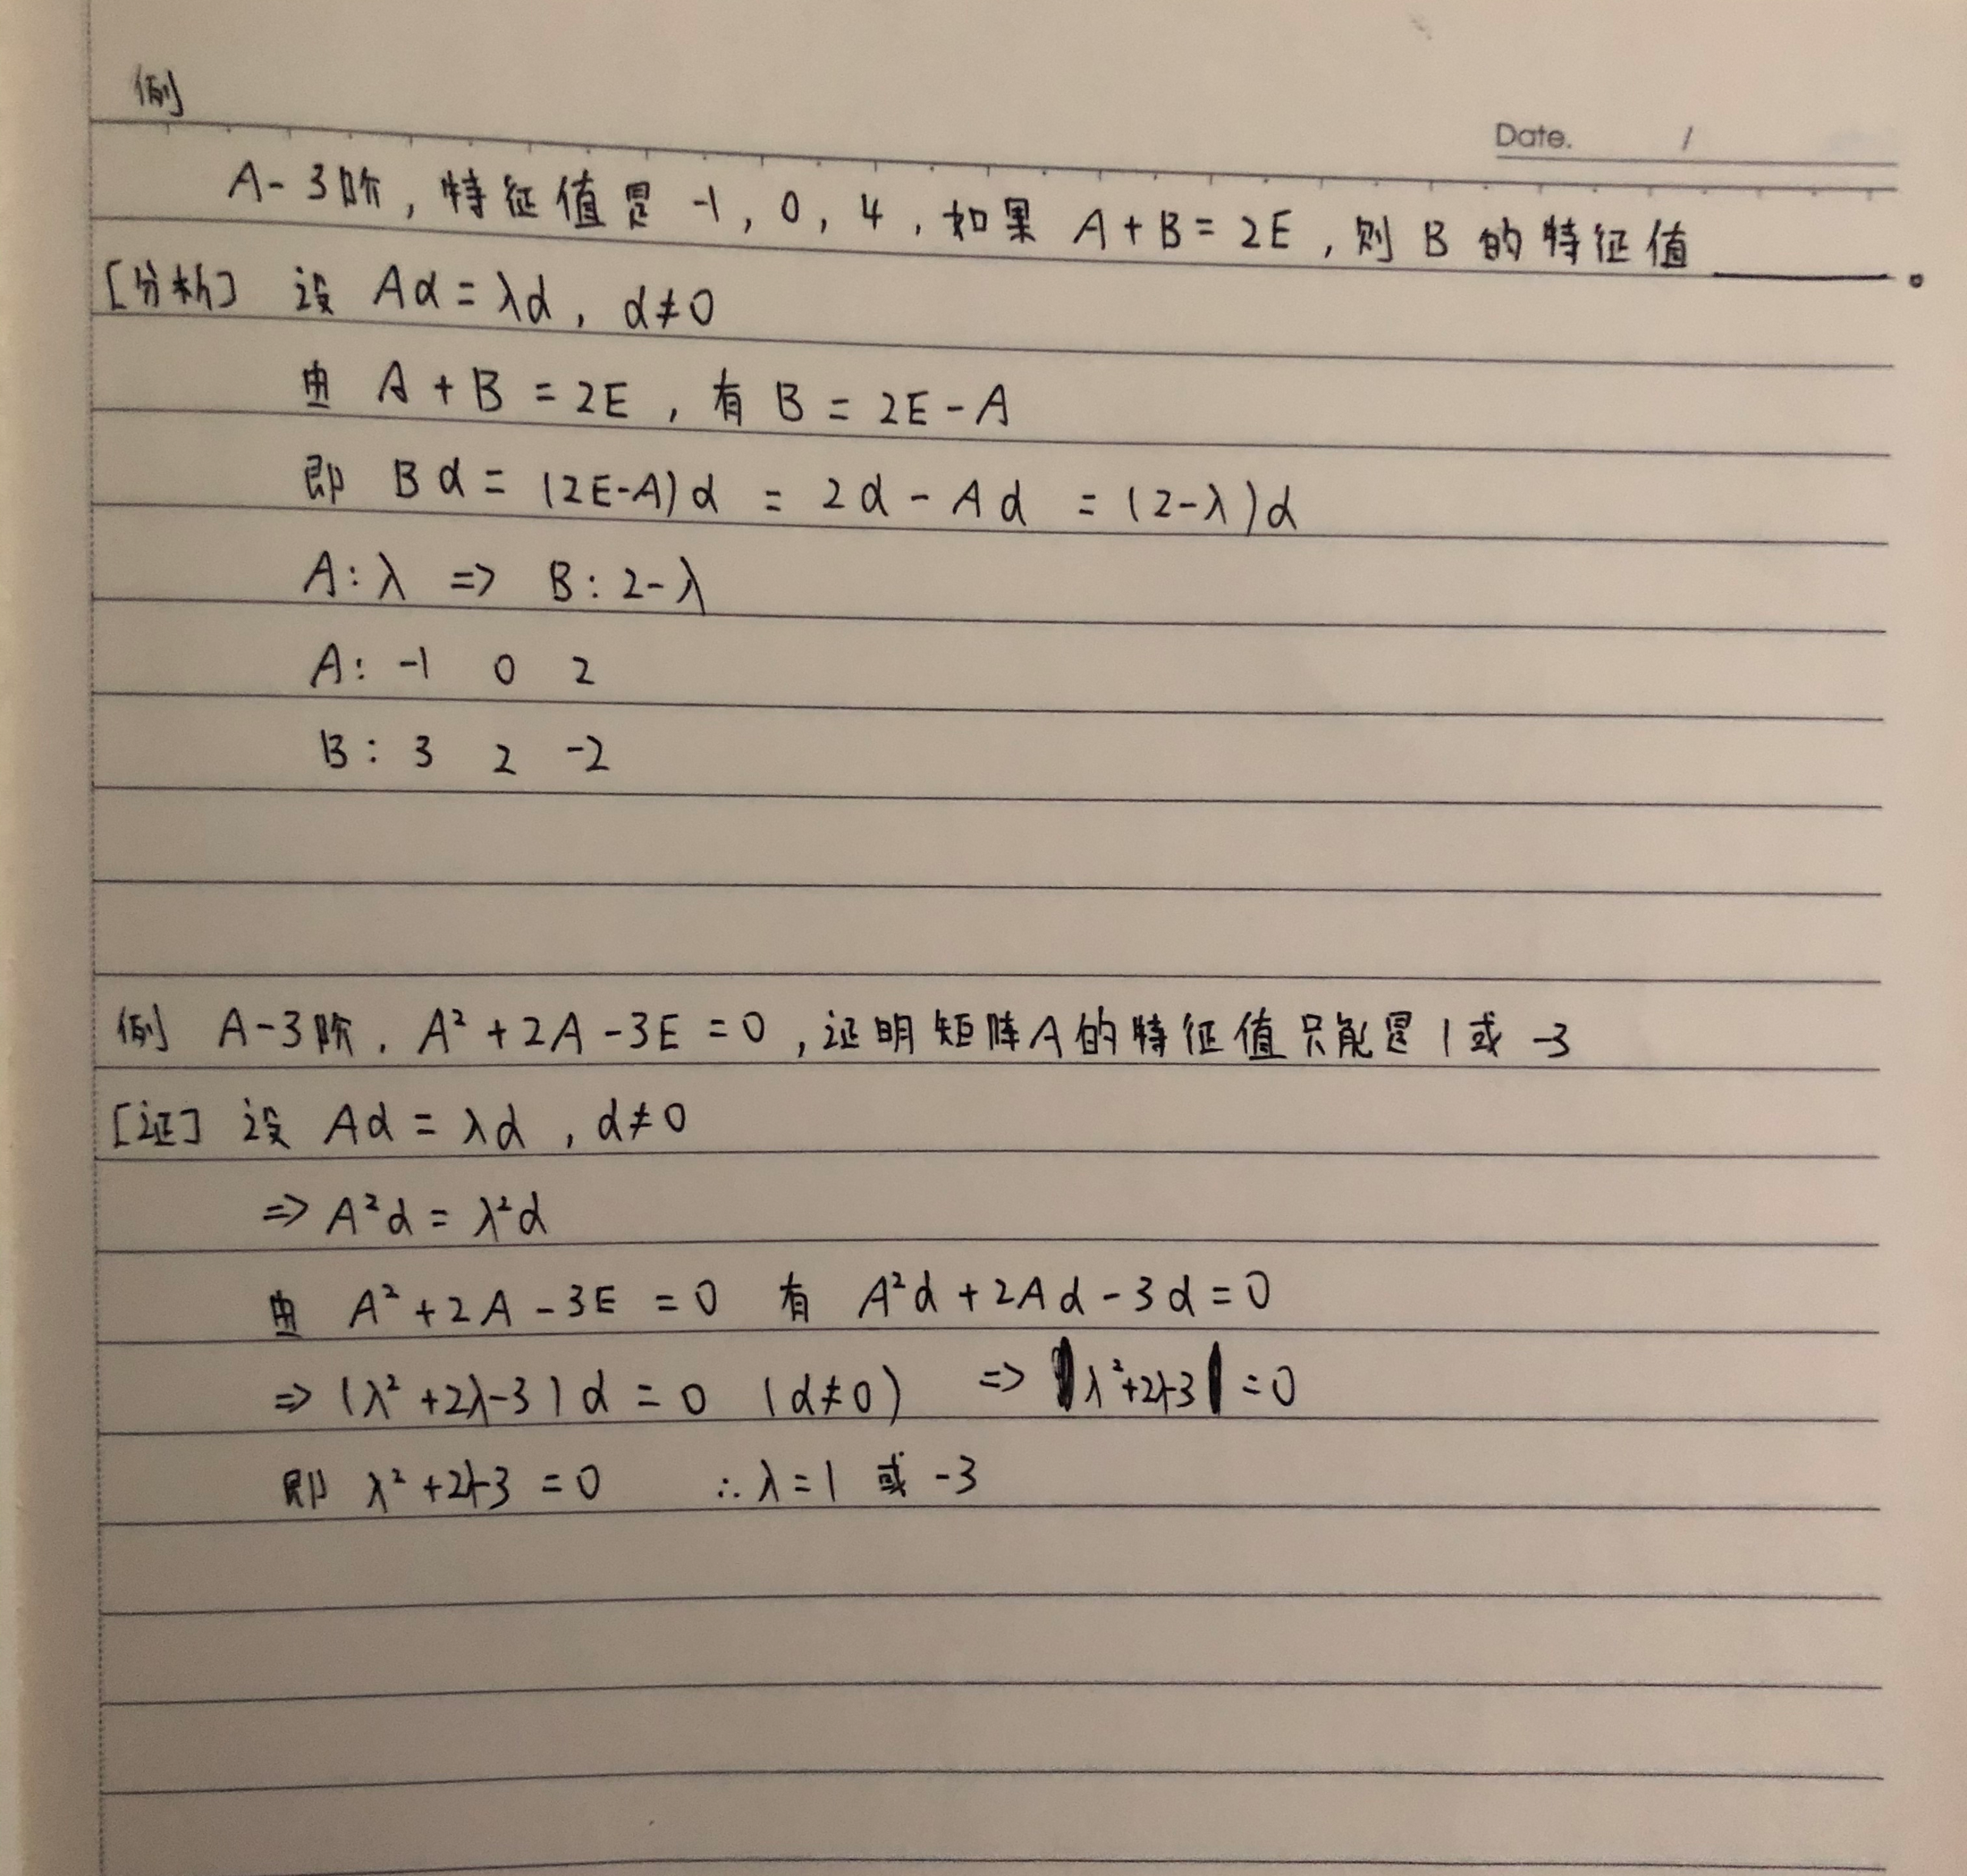 例
Date. /
A-3阶,特征值是 -1, 0, 4, 如果 A+B=2E, 则 B 的特征值______。
[分析] 设 Aα=λα, α≠0
由 A+B=2E, 有 B=2E-A
即 Bα=(2E-A)α=2α-Aα=(2-λ)α
A:λ => B:2-λ
A: -1 0 2
B: 3 2 -2
例 A-3阶. A²+2A-3E=0, 证明矩阵A的特征值只能是 1 或 -3
[证] 设 Aα=λα, α≠0
=> A²α=λ²α
由 A²+2A-3E=0 有 A²α+2Aα-3α=0
=> (λ²+2λ-3)α=0 (α≠0) => λ²+2λ-3=0
即 λ²+2λ-3=0 ∴λ=1 或 -3